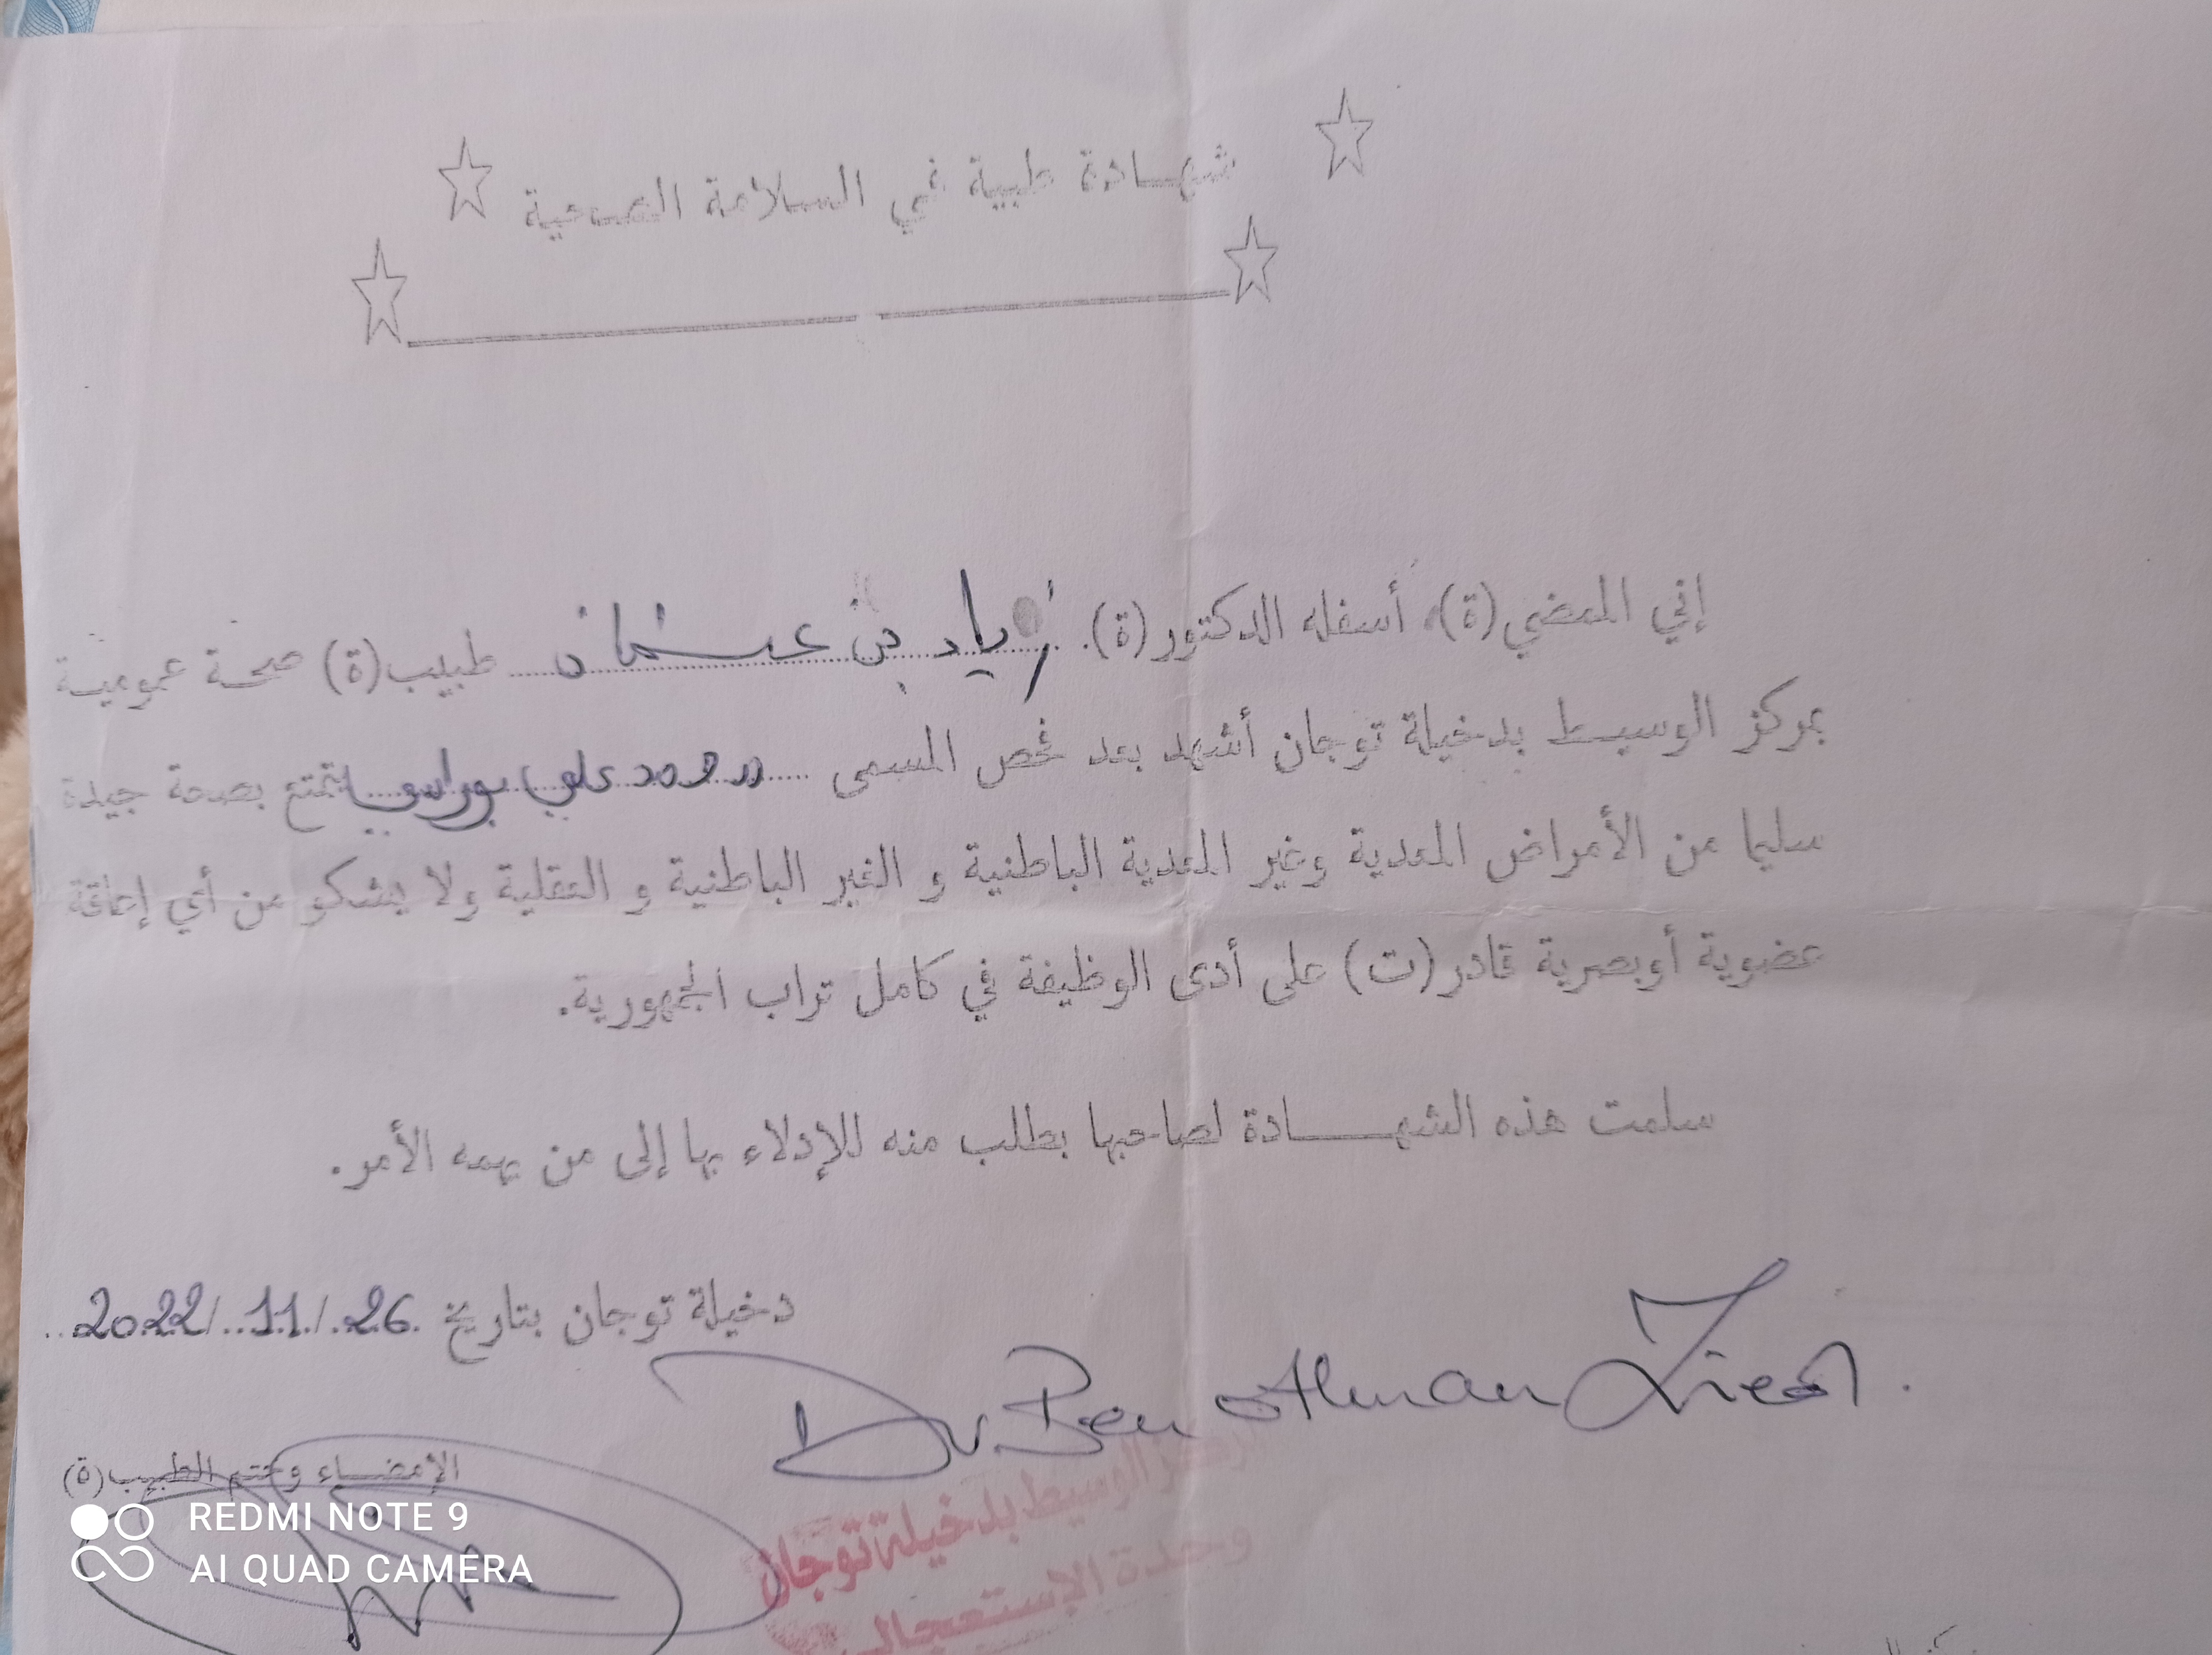 شهادة طبية في السلامة الصحية
إني الممضي(ة)، أسفله الدكتور(ة). زياد بن عثمان طبيب(ة) صحة عمومية
بمركز الوسيط بدخيلة توجان أشهد بعد فحص المسمى محمد علي بوراسي يتمتع بصحة جيدة
سليما من الأمراض المعدية وغير المعدية الباطنية و الغير الباطنية و العقلية ولا يشكو من أي إعاقة
عضوية أوبصرية قادر(ت) على أدى الوظيفة في كامل تراب الجمهورية.
سلمت هذه الشهادة لصاحبها بطلب منه للإدلاء بها إلى من يهمه الأمر.
دخيلة توجان بتاريخ 26/11/2022
Dr Ben Othman Zied.
الإمضاء وختم الطبيب(ة)
المركز الوسيط بدخيلة توجان
وحدة الإستعجالي
REDMI NOTE 9
AI QUAD CAMERA